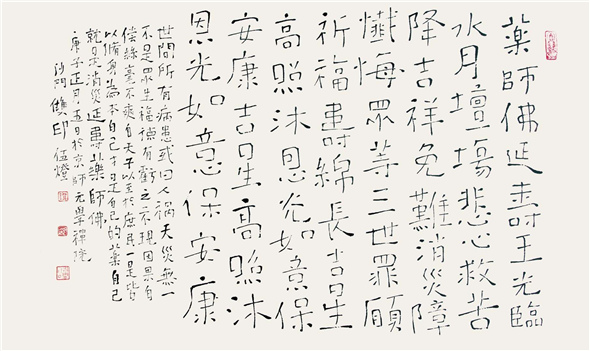 藥師佛延壽王光臨
水月壇場悲心救苦
降吉祥免難消災障
懺悔眾等三世罪願
祈福壽綿長吉星
高照沐恩光如意保
安康吉星高照沐
恩光如意保安康
世間所有病患或曰人禍天災無一
不是眾生福德有虧之不現因果自
償絲毫不爽自天子以至於庶民一是皆
以脩身為本自己才正自己的業自己
就消災延壽藥師佛
庚子正月五日於京師元學禪院
沙門雙印